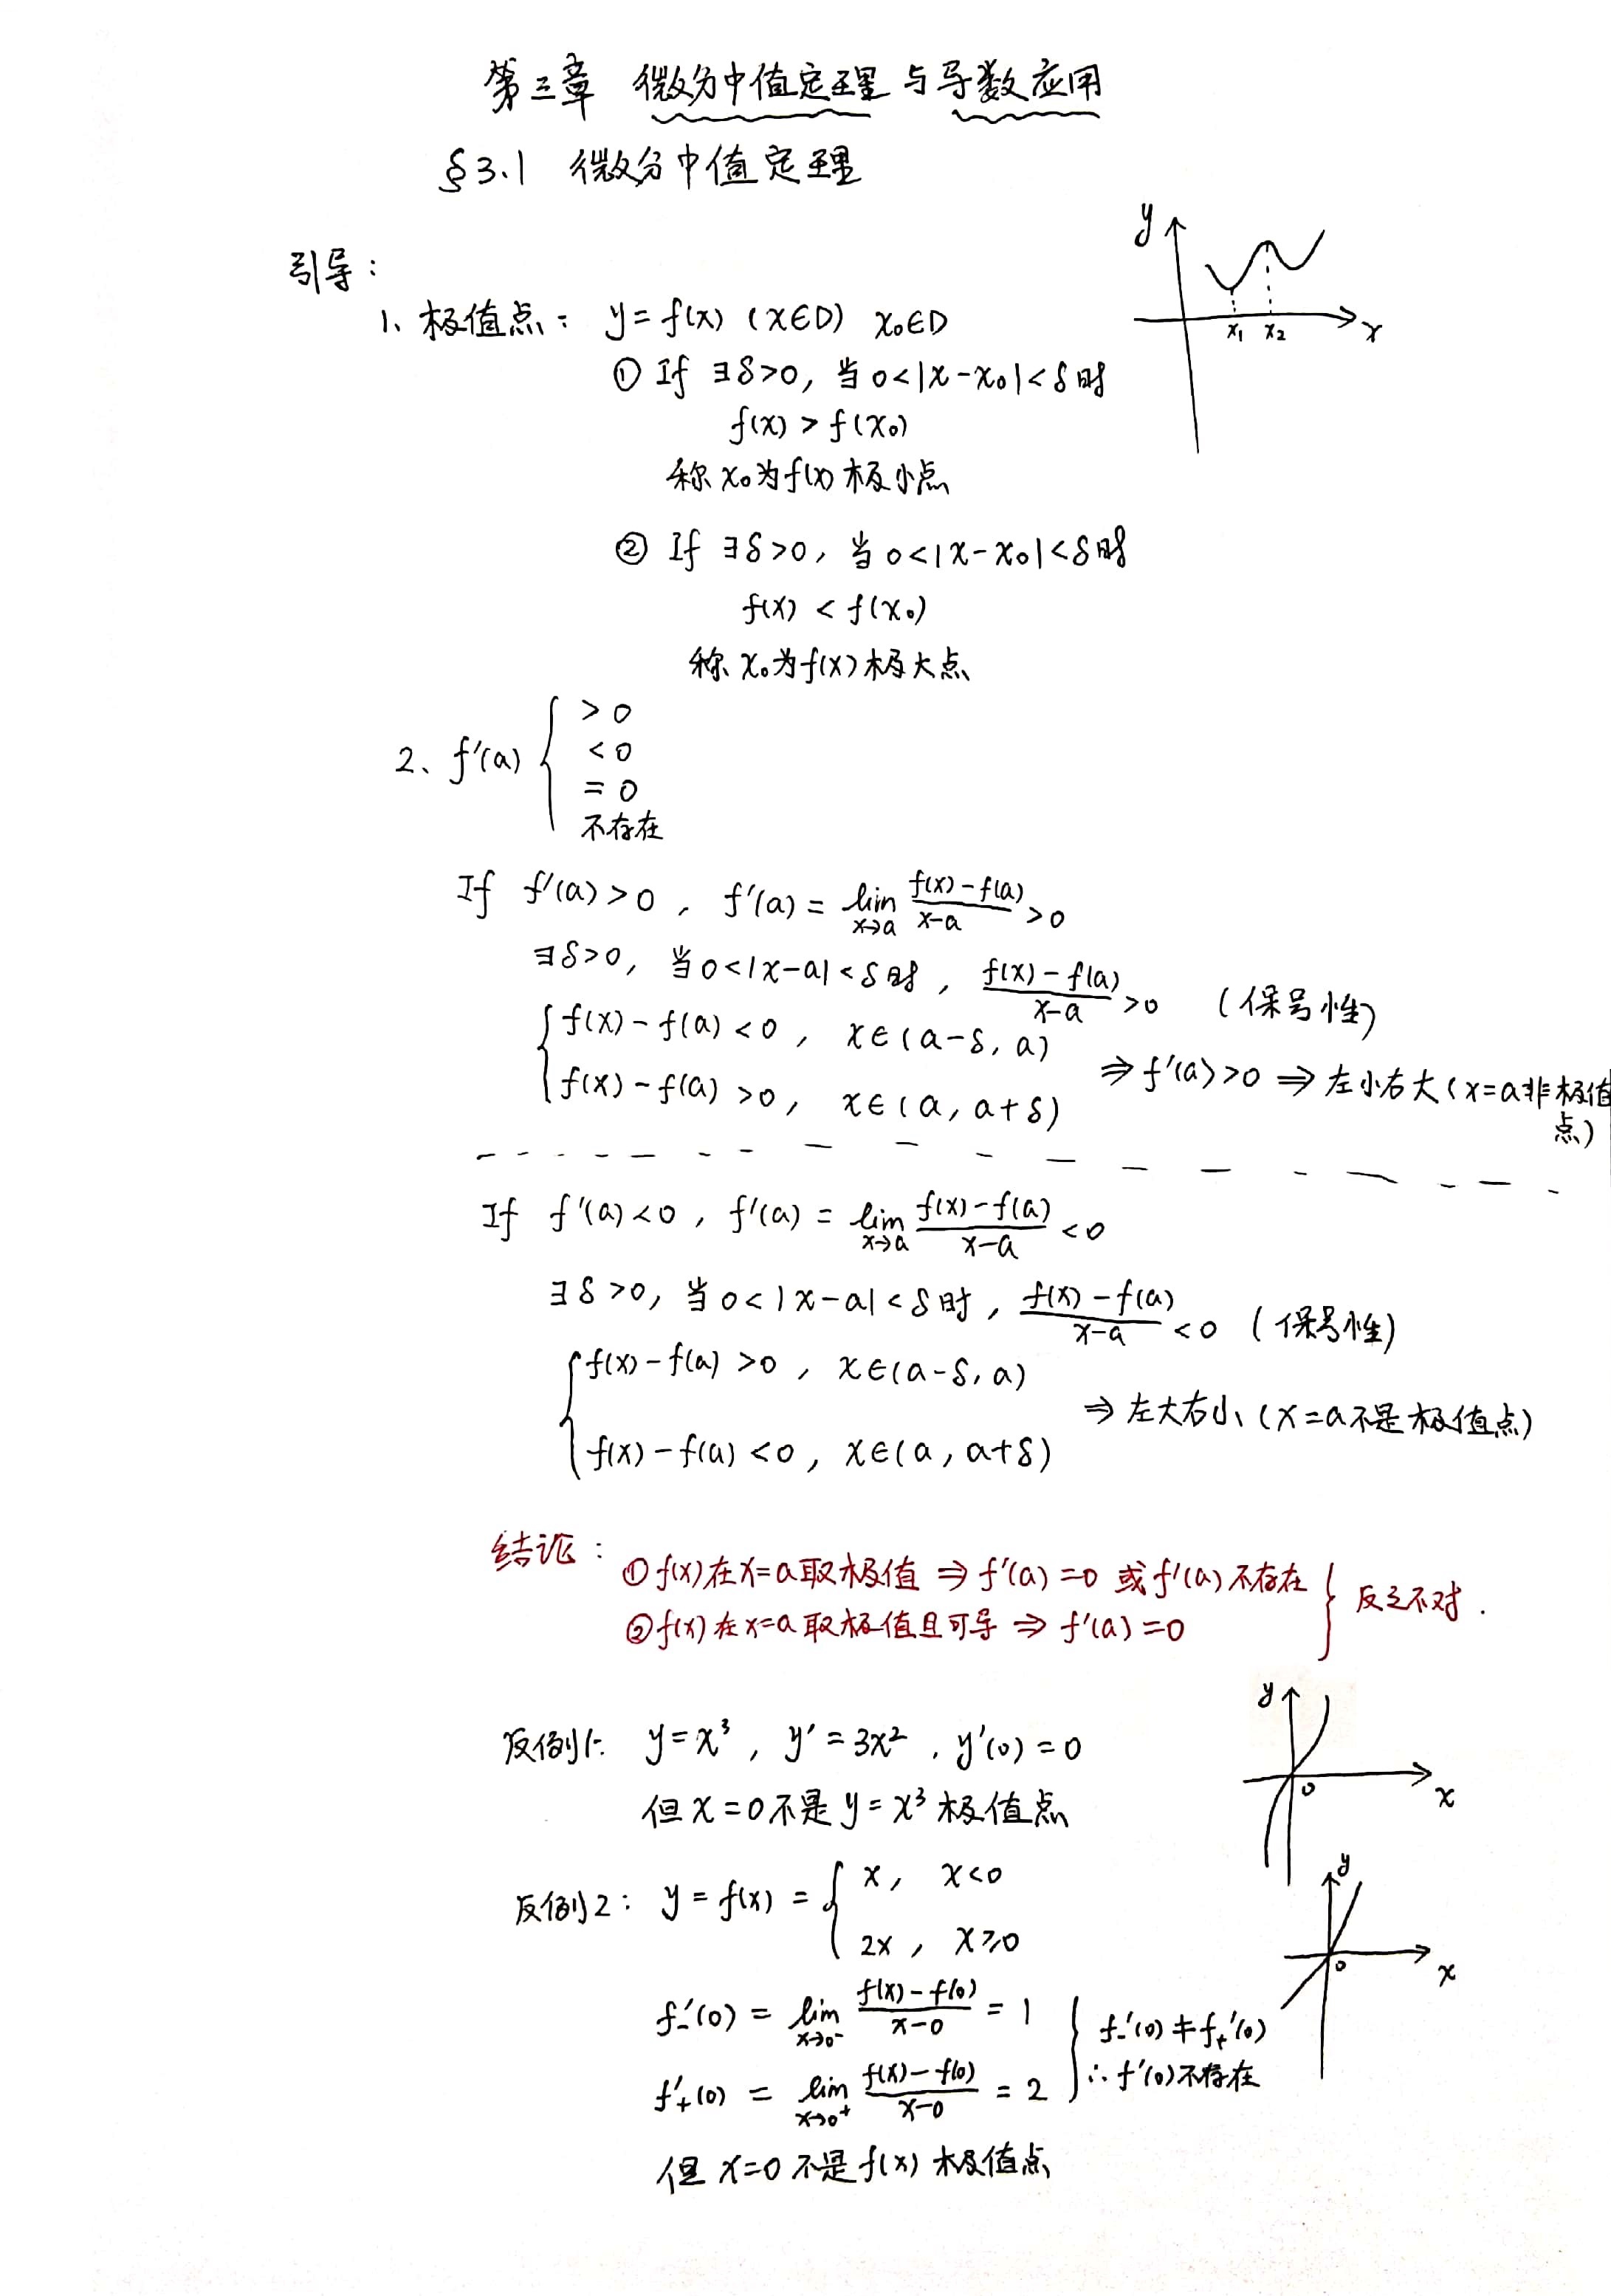 第三章 微分中值定理与导数应用
§3.1 微分中值定理
引导：
1、极值点： y=f(x) (x∈D) x₀∈D
① If ∃δ>0, 当0<|x-x₀|<δ时
f(x)>f(x₀)
称x₀为f(x)极小点
② If ∃δ>0, 当0<|x-x₀|<δ时
f(x)<f(x₀)
称x₀为f(x)极大点
y
x₁ x₂ x
2、f'(a) {
>0
<0
=0
不存在
If f'(a)>0, f'(a)=lim_{x→a} (f(x)-f(a))/(x-a) >0
∃δ>0, 当0<|x-a|<δ时, (f(x)-f(a))/(x-a) >0 (保号性)
{ f(x)-f(a)<0, x∈(a-δ, a)
f(x)-f(a)>0, x∈(a, a+δ)
⇒f'(a)>0 ⇒左小右大(x=a非极值
点)
If f'(a)<0, f'(a)=lim_{x→a} (f(x)-f(a))/(x-a) <0
∃δ>0, 当0<|x-a|<δ时, (f(x)-f(a))/(x-a) <0 (保号性)
{ f(x)-f(a)>0, x∈(a-δ, a)
f(x)-f(a)<0, x∈(a, a+δ)
⇒左大右小(x=a不是极值点)
结论：
①f(x)在x=a取极值⇒f'(a)=0 或f'(a)不存在
②f(x)在x=a取极值且可导⇒f'(a)=0
} 反之不对.
反例1: y=x³, y'=3x², y'(0)=0
但x=0不是y=x³极值点
y
0 x
反例2: y=f(x)= { x, x<0
2x, x≥0
y
0 x
f₋'(0)=lim_{x→0⁻} (f(x)-f(0))/(x-0) =1
f'₊(0)=lim_{x→0⁺} (f(x)-f(0))/(x-0) =2
} f₋'(0)≠f₊'(0)
∴f'(0)不存在
但x=0不是f(x)极值点